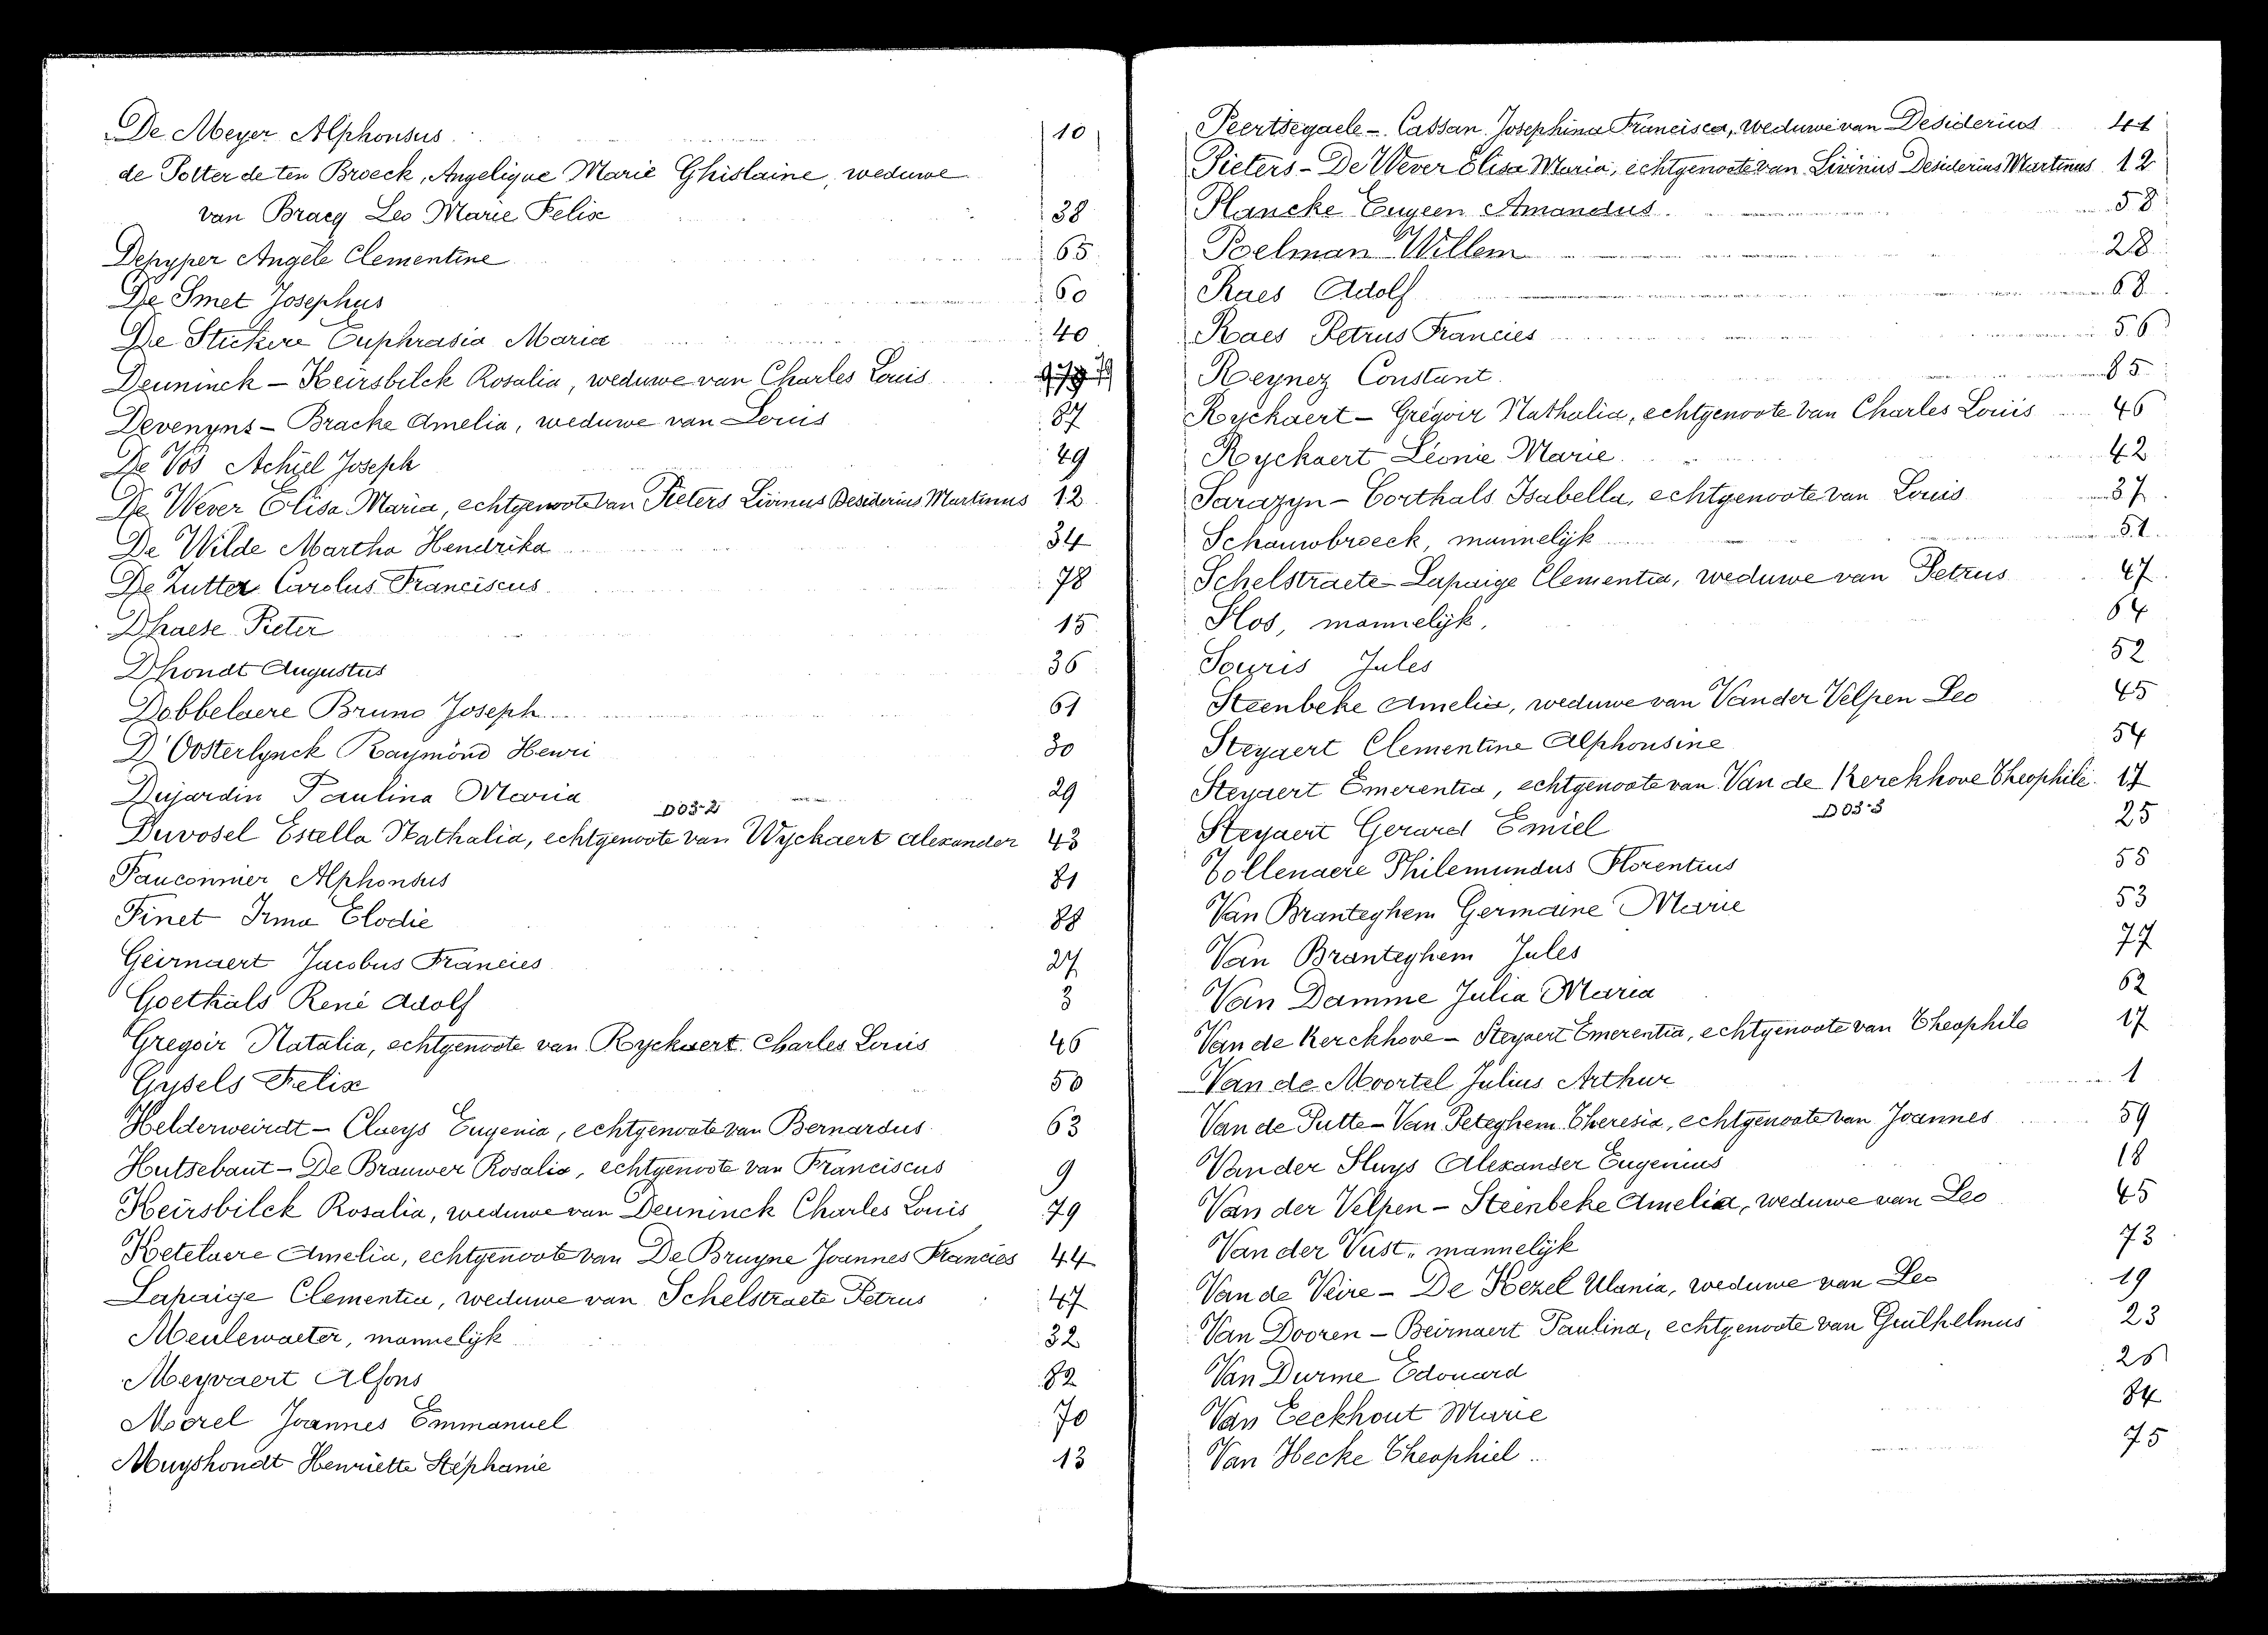 De Meyer Alphonsus 10
de Potter de ten Broeck, Angelique Marie Ghislaine, weduwe
van Bracq Leo Marie Felix 38
Depyper Angèle Clementine 65
De Smet Josephus 60
De Stickere Euphrasia Maria 40
Deuninck - Keirsbilck Rosalia, weduwe van Charles Louis 79
Devenyns - Bracke Amelia, weduwe van Louis 87
De Vos Achiel Joseph 49
De Wever Elisa Maria, echtgenoote van Pieters Livinus Desiderius Martinus 12
De Wilde Martha Hendrika 34
De Zutter Carolus Franciscus 78
Dhaese Pieter 15
Dhondt Augustus 36
Dobbelaere Bruno Joseph 61
D'Oosterlynck Raymond Henri 30
Dujardin Paulina Maria 29
D03-2
Duvosel Estella Nathalia, echtgenoote van Wyckaert Alexander 43
Fauconnier Alphonsus 81
Finet Irma Elodie 88
Geirnaert Jacobus Francies 27
Goethals René Adolf 3
Gregoir Natalia, echtgenoote van Ryckaert Charles Louis 46
Gysels Felix 50
Helderweirdt - Claeys Eugenia, echtgenoote van Bernardus 63
Hutsebaut - De Brouwer Rosalia, echtgenoote van Franciscus 9
Keirsbilck Rosalia, weduwe van Deuninck Charles Louis 79
Ketelaere Amelia, echtgenoote van De Bruyne Joannes Francies 44
Lapaige Clementia, weduwe van Schelstraete Petrus 47
Meulewaeter, mannelijk 32
Meyvaert Alfons 82
Moorel Joannes Emmanuel 70
Muyshondt Henriette Stéphanie 13
Peertsegaele - Cassan Josephina Francisca, weduwe van Desiderius 41
Pieters - De Wever Elisa Maria, echtgenoote van Livinius Desiderius Martinus 12
Plancke Eugeen Amandus 58
Poelman Willem 28
Raes Adolf 68
Raes Petrus Francies 56
Reynez Constant 85
Ryckaert - Grégoir Nathalia, echtgenoote van Charles Louis 46
Ryckaert Léonie Marie 42
Sarazyn - Corthals Isabella, echtgenoote van Louis 37
Schauwbroeck, mannelijk 51
Schelstraete - Lapaige Clementia, weduwe van Petrus 47
Slos, mannelijk, 64
Souris Jules 52
Steenbeke Amelia, weduwe van Vander Velpen Leo 45
Steyaert Clementine Alphonsine 54
Steyaert Emerentia, echtgenoote van Van de Kerckhove Theophile 17
D03-3
Steyaert Gerard Emiel 25
Tollenaere Philemundus Florentius 55
Van Branteghem Germaine Marie 53
Van Branteghem Jules 77
Van Damme Julia Maria 62
Van de Kerckhove - Steyaert Emerentia, echtgenoote van Theophile 17
Van de Moortel Julius Arthur 1
Van de Putte - Van Peteghem Theresia, echtgenoote van Joannes 59
Van der Sluys Alexander Eugenius 18
Van der Velpen - Steenbeke Amelia, weduwe van Leo 45
Van der Vust, mannelijk 73
Van de Veire - De Kezel Ulania, weduwe van Leo 19
Van Dooren - Beirnaert Paulina, echtgenoote van Guilhelmus 23
Van Durme Edouard 26
Van Eeckhout Marie 84
Van Hecke Theophiel 75